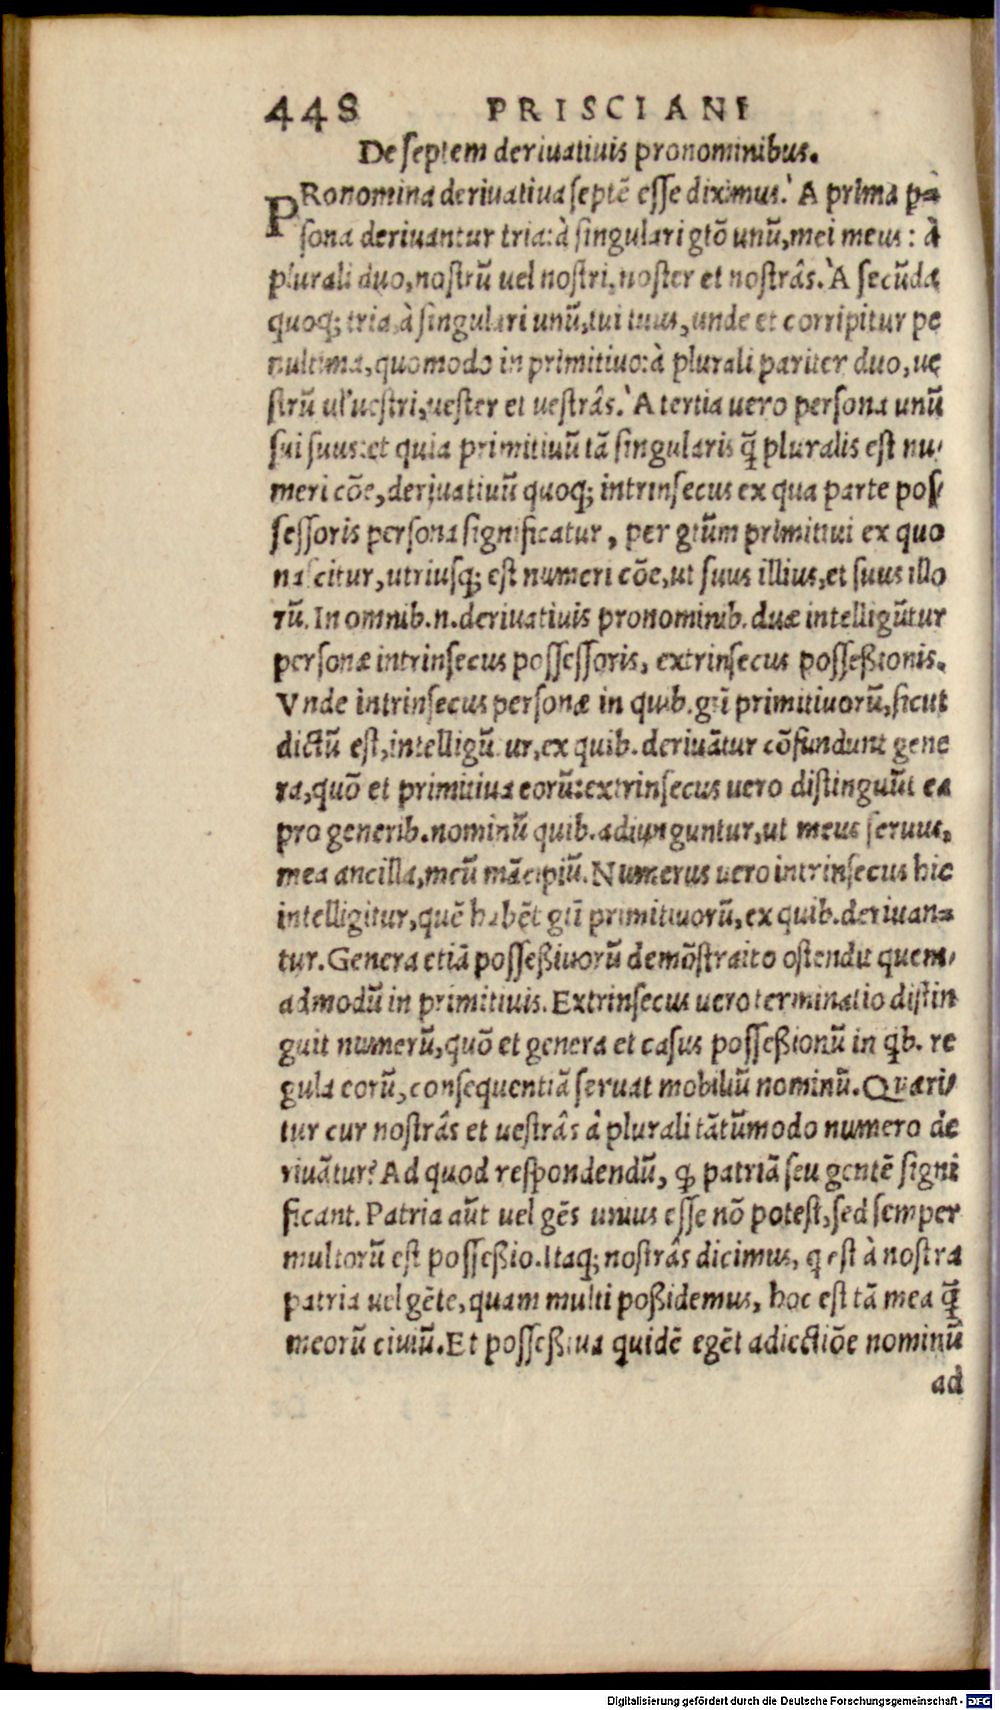 448 PRISCIANI
De septem derivativis pronominibus.
PRonomina derivativa septẽ esse diximus. À prima ꝑ-
sona derivantur tria: à singulari gtõ unũ, mei meus: à
plurali duo, nostrũ uel nostri, noster et nostrâs. À secũda
quoq; tria, à singulari unũ, tui tuus, unde et corripitur pe
nultima, quomodo in primitiuo: à plurali pariter duo, ue
strũ ul' uestri, uester et uestrâs. À tertia uero persona unũ
sui suus: et quia primitiuũ tã singularis q̃ pluralis est nu-
meri cõe, deriuatiuũ quoq; intrinsecus ex qua parte pos-
sessoris persona significatur, per gtũm primitiui ex quo
nascitur, utriusq; est numeri cõe, ut suus illius, et suus illo
rũ. In omnib. n. deriuatiuis pronominib. duæ intelligũtur
personæ intrinsecus possessoris, extrinsecus possessionis.
Vnde intrinsecus personæ in quib. gtĩ primitiuorũ, sicut
dictũ est, intelligũtur, ex quib. deriuãtur cõfundunt gene
ra, quõ et primitiua eorũ: extrinsecus uero distinguũt ea
pro generib. nominũ quib. adiunguntur, ut meus seruus,
mea ancilla, meũ mãcipiũ. Numerus uero intrinsecus hic
intelligitur, quẽ habẽt gtĩ primitiuorũ, ex quib. deriuan-
tur. Genera etiã possessiuorũ demõstratio ostendit quem-
admodũ in primitiuis. Extrinsecus uero terminatio distin
guit numerũ, quõ et genera et casus possessionũ in qb. re
gula eorũ, consequentiã seruat mobiliũ nominũ. Quæri-
tur cur nostrâs et uestrâs à plurali tãtũmodo numero de
riuãtur? Ad quod respondendũ, ꝙ patriã seu gentẽ signi
ficant. Patria aũt uel gẽs unius esse nõ potest, sed semper
multorũ est possessio. Itaq; nostrâs dicimus, q est à nostra
patria uel gẽte, quam multi possidemus, hoc est tã mea q̃
meorũ ciuiũ. Et possessiua quidẽ egẽt adiectiõe nominũ
ad
Digitalisierung gefördert durch die Deutsche Forschungsgemeinschaft - DFG